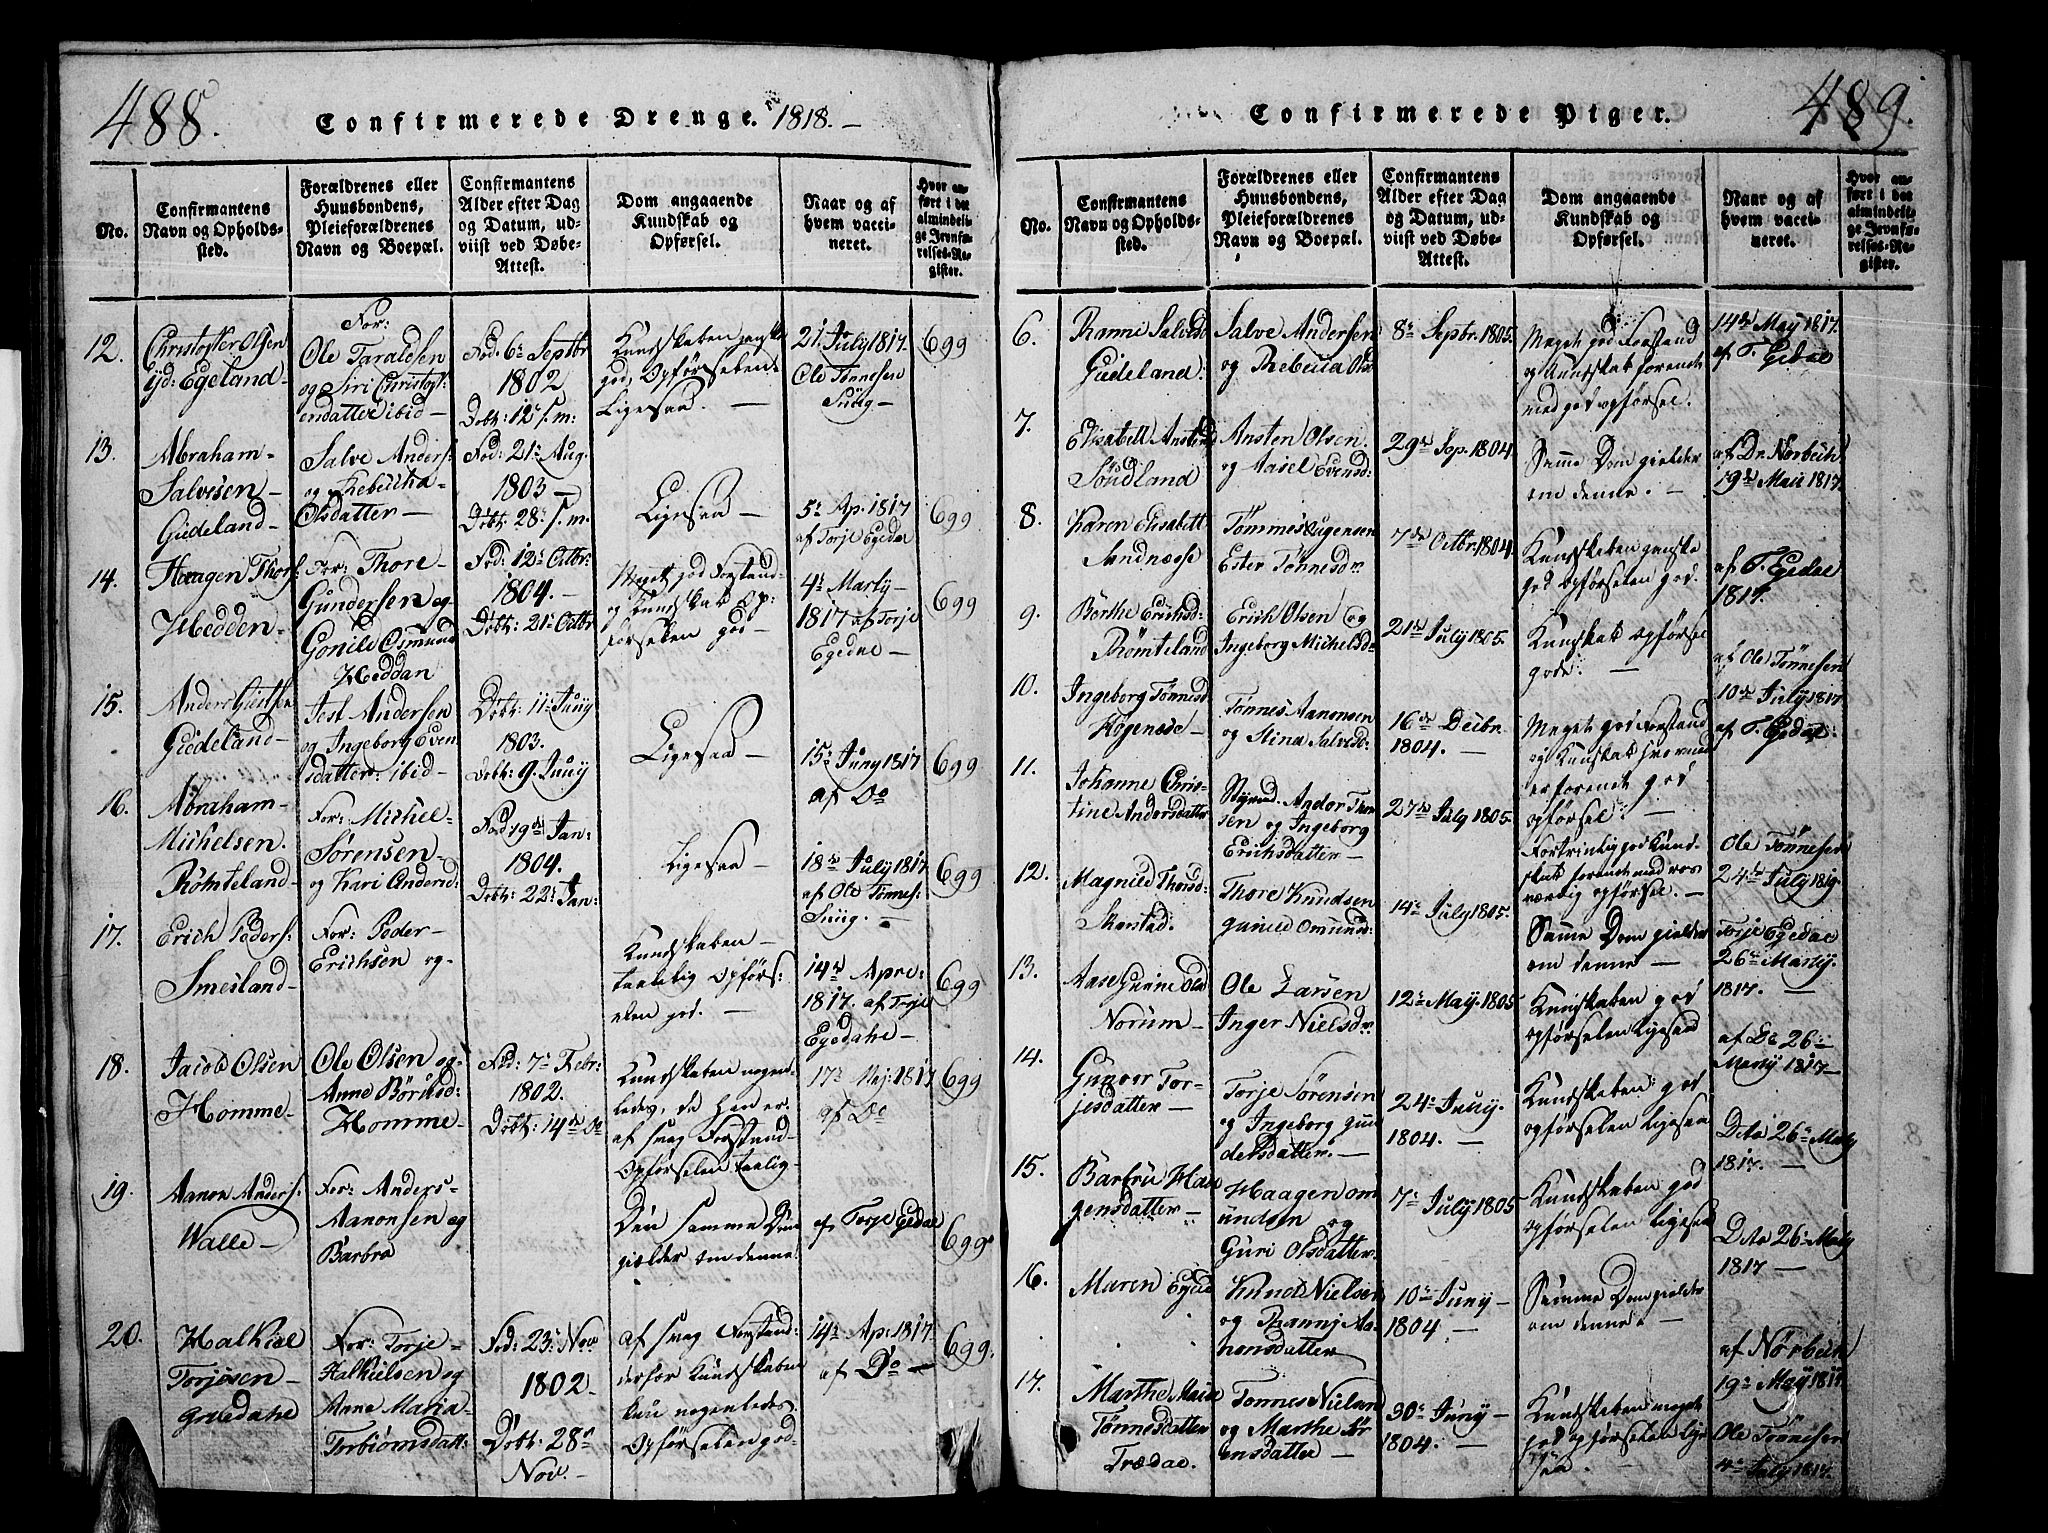 488.
Confirmerede Drenge. 1818.—
No.
Confirmantens Navn og Opholdssted.
Forældrenes eller Huusbondens, Pleieforældrenes Navn og Boepæl.
Confirmantens Alder efter Dag og Datum, udviist ved Døbe-Attest.
Dom angaaende Kundskab og Opførsel.
Naar og af hvem vaccineret.
Hvor anført i det almindelige Jevnførelses-Register.
12.
Christopher Olsen
Egeland—
For:
Ole Taraldsen
og Siri Christophersdatter ibid—
Fød: 6te Septbr
1802
Døbt: 12
Kundskaben ganske
god, Opførselen
Ligesaa. —
21 July 1817.
Ole Tønnesen
699
13.
Abraham—
Salvesen—
Gideland—
Salve Anders:
og Rebecka
Olsdatter—
Fød: 21te Aug.
1803—
Døbt: 28
Ligesaa—
5te Ap. 1817
af Torje Egedal
699
14.
Haagen Thors:
Hedden—
For: Thore—
Gundersen og
Gonild Osmund
Heddan
Fød: 12te Octbr:
1804.—
Døbt: 21te Octbr
Meget god Forstand—
og Kundskab Opførselen god—
4te Marty—
1817 af Torje
Egedal—
699
15.
Anders
Gideland—
Jest Andersen
og Ingeborg Evensdatter: ibid—
1803.
Døbt: 9. Juny
Ligesaa—
15te Juny 1817
af Do
699
16.
Abraham—
Michelsen.
Rømteland—
For: Michel—
Sørensen—
og Kari
Fød 19de Jan:
1804.
Døbt: 22: Jan:
Ligesaa—
18de July 1817
af Ole Tønnes:
699
17.
Erich Peders:
Smesland—
For: Peder—
Erichsen og—
Kundskaben—
taalelig Opførselen god. —
14de Apre:
1817. af Torje
Egedahl—
699
18.
Jacob Olsen
Homme—
Ole Olsen og—
Anne
Homme—
Fød: 7de Febr:
1802.
Døbt: 14de Do
Kundskaben nogenledes, da han er
af svag Forstand—
Opførselen taalig—
17de Maj: 1817
af Do
699
19.
Aanon Anders:
Walle—
For: Anders—
Aanonsen og
Barbro
Den samme Dom
gielder om denne.
af Torje Egedal
699.
20.
Halkiel
Torjesen—
Grusdahl
For: Torje—
Halkielsen og
Anne Maria—
Torbiørnsdatt:
Fød: 23: Nov
1802—
Døbt: 28de
Nov—
af svag Forstand:
derfor Kundskaben
kun nogenledes.
Opførselen god—
14de Ap: 1817
af Do—
699.
489.
Confirmerede Piger.
No.
Confirmantens Navn og Opholdssted.
Forældrenes eller Huusbondens, Pleieforældrenes Navn og Boepæl.
Confirmantens Alder efter Dag og Datum, udviist ved Døbe-Attest.
Dom angaaende Kundskab og Opførsel.
Naar og af hvem vaccineret.
Hvor anført i det almindelige Jevnførelses-Register.
6.
Ranni Salvesd:
Gideland:
Salve Andersen
og Rebecka Olsd
8te Septbr. 1805.
Meget god Forstand
og Kundskab forenet
med god opførsel.
14de May 1817.
af T. Egedal
7.
Elisabett
Sundland
Ansten Olsen.
og Aasel Evensd:
29de Sep. 1804.
Samme Dom gielder
om denne. —
af Dr. Nørbech
19de Maii 1817.
8.
Karen Elisabett
Sandnæse
Ester Tønnesd:
7de Octbr. 1804.
Kundskaben ganske
god opførselen god.
af T. Egedal
1817.
9.
Berthe Erichsd:
Rømteland
Erich Olsen og
Ingeborg Michelsd:
21de July 1805.
Kundskab opførsel
gode. —
af Ole Tønnesen
10de July 1817
10.
Ingeborg Tønnesd:
Høgenæse—
Tønnes Aanonsen
og Stina Salvesd:
16de Decbr.
1804. —
Meget god Forstand
og Kundskab
forenet god
opførsel: —
af T. Egedal:
11.
Johanne Christine Andersdatter
Ander Thorsen og Ingeborg
Erichsdatter—
27de July 1805.
Fortrinlig god Kundskab forenet med rosværdig opførsel. —
Ole Tønnesen
24de July 1819.
12.
Magnild Thorsd:
Skarstad:
Thore Knudsen
gunild Omunds:
14te July 1805.
Samme Dom gielder
om denne—
Torje Egedal
26te Marty.
1817. —
13.
Aase Gurine Olsd
Norum—
Ole Larsen
Inger Nielsd:
12te May. 1805
Kundskaben god
opførselen ligesaa
af Do 26—
Marty 1817—
14.
Gunver Torjesdatter—
Torje Sørensen
og Ingeborg Gundersdatter. —
24de Juny.
1804. —
Kundskaben god
opførselen ligesaa
Dito 26te Marty
1817. —
15.
Barbru Haagensdatter—
Haagen Omundsen og
Guri Olsdatter:
7de July 1805
Kundskaben god
opførselen ligesaa
Dito 26te Marty
1817—
16.
Maren Egedal
Knud Nielsen
og Rannj Aanonsdatter
10de Juny—
1804. —
Samme Dom gielder
om denne—
af Nørbech
19de May 1817
17.
Marthe
Tønnesdatter
Trædal.
Tønnes Nielsen
og Marthe Sørensdatter—
30te Juny—
1804. —
Kundskaben meget
god opførselen ligesaa. —
Ole Tønnesen
4de July 1817.